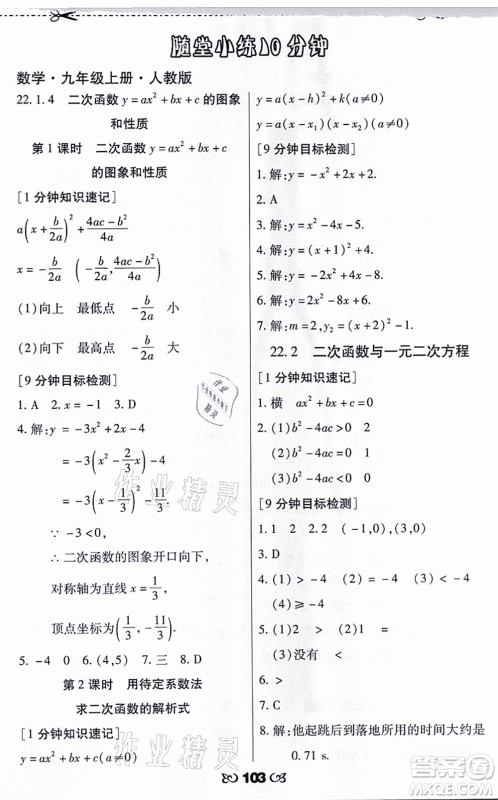 随堂小练10分钟
数学·九年级上册·人教版
22.1.4 二次函数 y=ax²+bx+c 的图象
和性质
第1课时 二次函数 y=ax²+bx+c
的图象和性质
[1分钟知识速记]
a(x+b/2a)²+(4ac-b²)/4a
x=-b/2a (-b/2a, (4ac-b²)/4a)
(1)向上 最低点 -b/2a 小
(2)向下 最高点 -b/2a 大
[9分钟目标检测]
1. A 2. x=-1 3. D
4. 解:y=-3x²+2x-4
=-3(x²-2/3 x)-4
=-3(x-1/3)²-11/3.
∵ -3<0,
∴ 二次函数的图象开口向下,
对称轴为直线 x=1/3,
顶点坐标为(1/3,-11/3).
5. -4 0 6. (4,5) 7. 三 8. D
第2课时 用待定系数法
求二次函数的解析式
[1分钟知识速记]
y=ax²+bx+c(a≠0)
y=a(x-h)²+k(a≠0)
y=a(x-x₁)(x-x₂)(a≠0)
[9分钟目标检测]
1. 解:y=-x²+4x.
2. A
3. 解:y=x²-4x-5.
4. 解:y=(x+1)²-4.
5. 解:y=-2x²+4x+6.
6. 解:y=x²+4x-8.
7. 解:m=2,y=-x²+2x-1.
22.2 二次函数与一元二次方程
[1分钟知识速记]
1. 横 ax²+bx+c=0
2. (1)b²-4ac>0 (2)b²-4ac=0
(3)b²-4ac<0
[9分钟目标检测]
1. 1 2 2. 2 (-1,0),(3,0)
3. D
4. (1)>-4 (2)=-4 (3)<-4
(4)≥-4
5. (1)x₁=-1,x₂=3 (2)x<-1或x>3
(3)-1<x<3
6. >
7. C
8. 解:他起跳后到落地所用的时间大约是
0.71 s.
103
作业精灵
作业精灵
答案圈
MXQE.COM